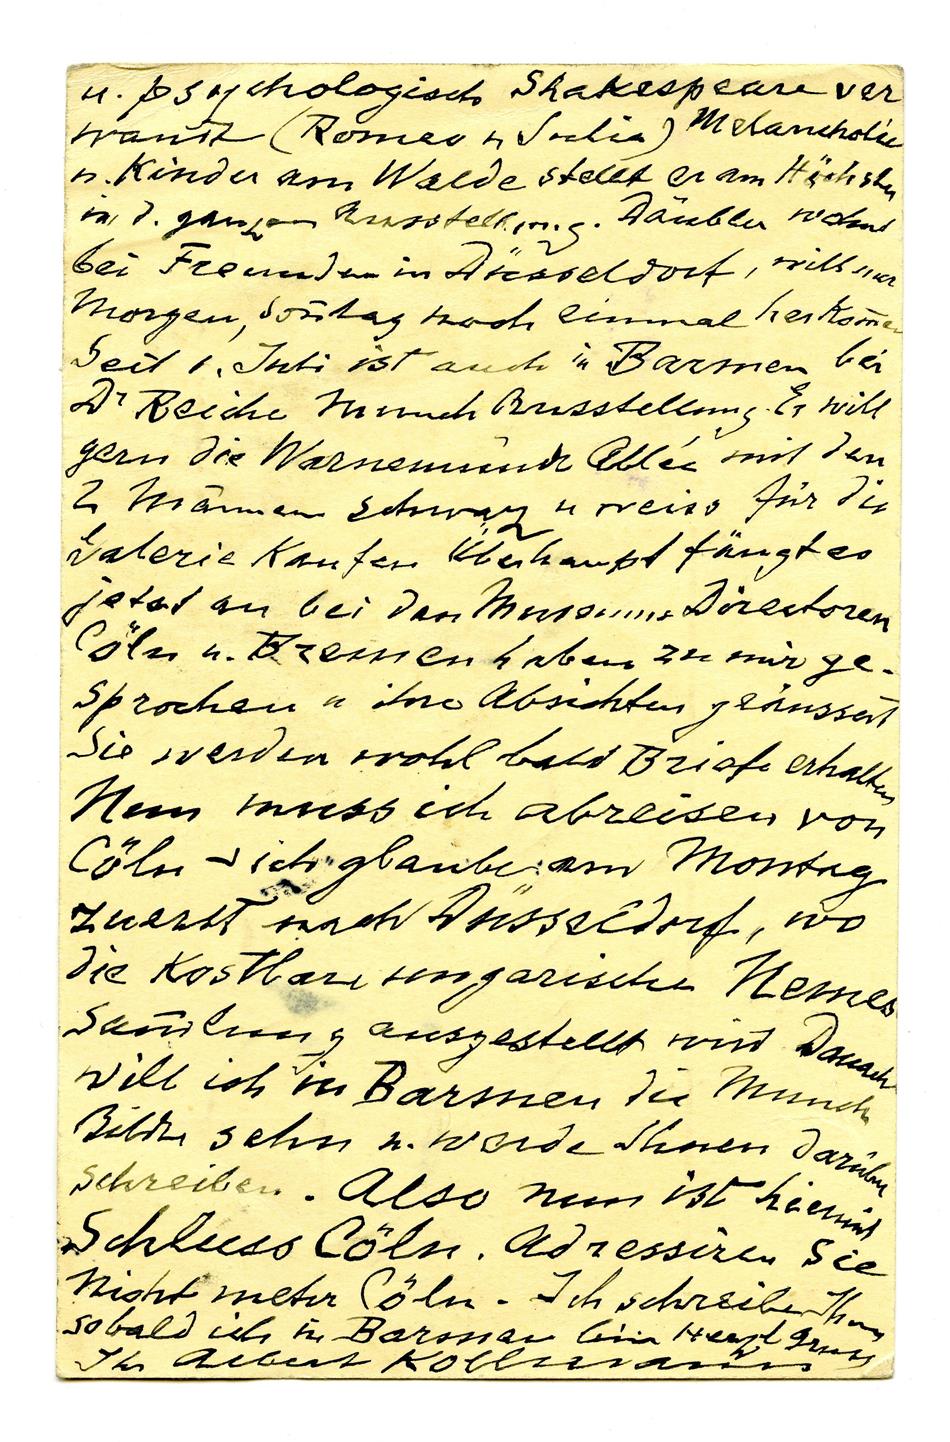 u. psychologisch Shakespeare ver
wandt (Romeo u Julia) Melancholie
u. Kinder am Walde stellt er am Höchsten
in d. ganzen Ausstellung. Däubler wohnt
bei Freunden in Düsseldorf, will nur
Morgen, Son̄tag noch einmal herkom̄en
Seit 1. Juli ist auch in Barmen bei
Dr Reiche Munch Ausstellung. Er will
gern die Warnemünde Allée mit den
2 Männern schwarz u weiss für die
Galerie Kaufen Überhaupt fängt es
jetzt an bei den Museums Directoren
Cöln u. Bremen haben zu mir ge-
sprochen u ihre Absichten geäussert
Sie werden wohl bald Briefe erhalten
Nun muss ich abreisen von
Cöln – ich glaube am Montag
zuerst nach Düsseldorf, wo
die Kostbare ungarische Nemes
Sam̄lung ausgestellt wird Danach
will ich in Barmen die Munch
Bilder sehn u. werde Ihnen darüber
schreiben. Also nun ist hiermit
Schluss Cöln. Adressiren Sie
Nicht mehr Cöln – Ich schreibe Ihnen
sobald ich in Barmen bin Herzl Gruss
Ihr Albert Kollmann